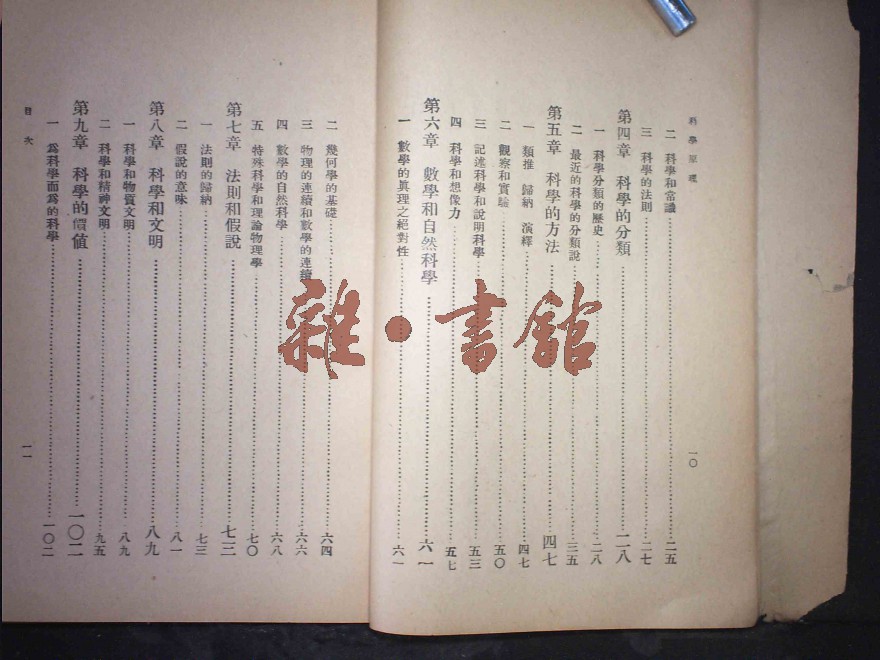 科學原理
二 科學和常識……二五
三 科學的法則……二七
第四章 科學的分類……二八
一 科學分類的歷史……二八
二 最近的科學的分類說……三五
第五章 科學的方法……四七
一 類推 歸納 演繹……四七
二 觀察和實驗……五〇
三 記述科學和說明科學……五三
四 科學和想像力……五七
第六章 數學和自然科學……六一
一 數學的眞理之絕對性……六一
一〇
二 幾何學的基礎……六四
三 物理的連續和數學的連續……六六
四 數學的自然科學……六八
五 特殊科學和理論物理學……七〇
第七章 法則和假說……七三
一 法則的歸納……七三
二 假說的意味……八一
第八章 科學和文明……八九
一 科學和物質文明……八九
二 科學和精神文明……九五
第九章 科學的價值……一〇二
一 爲科學而爲的科學……一〇二
目次
一一
雜·書館